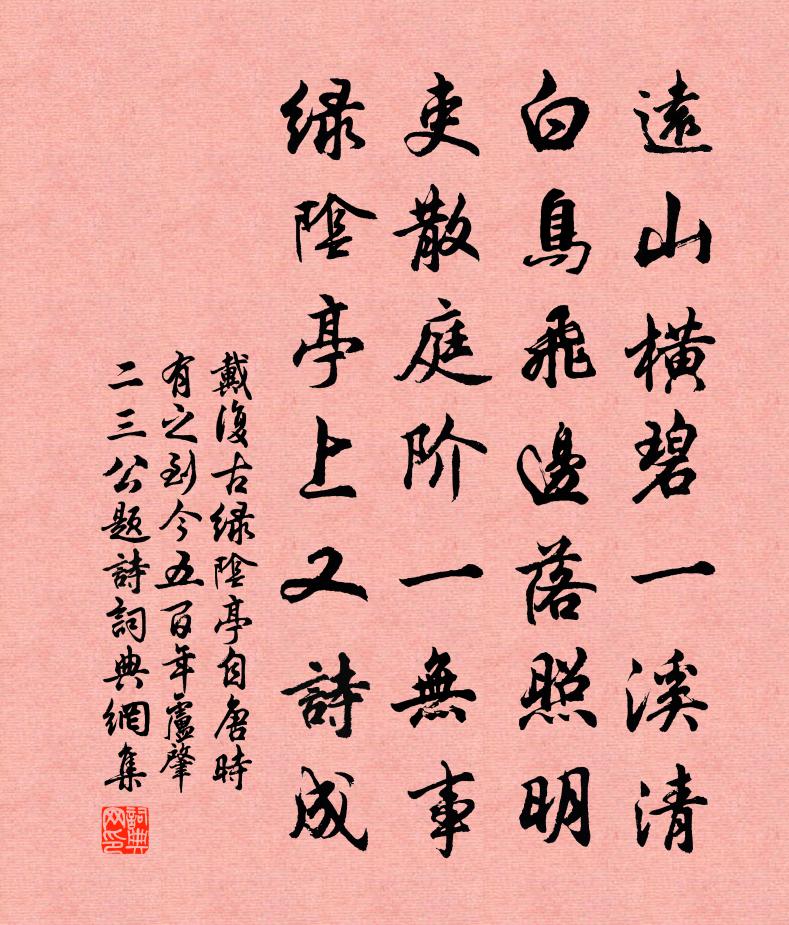 遠山橫碧一溪清
白鳥飛邊落照明
吏散庭阶一無事
绿陰亭上又詩成
戴復古绿陰亭自唐時
有之到今五百年盧肇
二三公题詩詞典網集
詞典网印